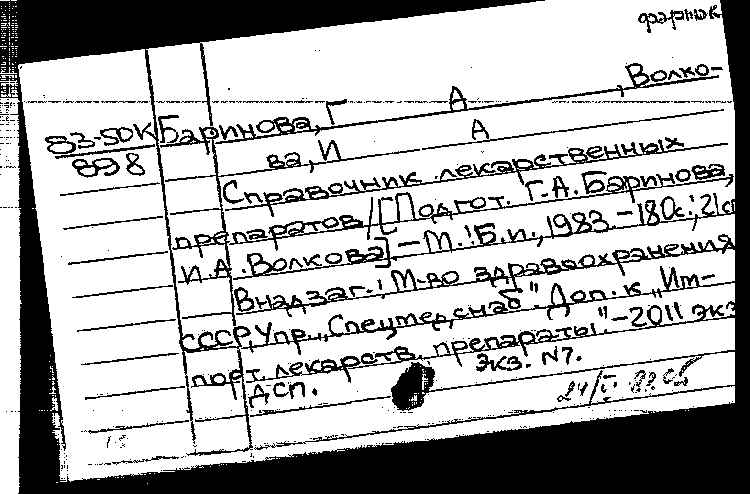 фармак
83-50К Баринова, Г А , Волко-
898 ва, И А
Справочник лекарственных
препаратов / [Подгот. Г.А. Баринова,
И.А. Волкова]. – М.: Б.и., 1983. – 180с.; 21с
В надзаг.: М-во здравоохранения
СССР, Упр. „Спецмедснаб". Доп. к „Им-
порт. лекарств. препараты." – 2011 экз
ДСП. экз. N7.